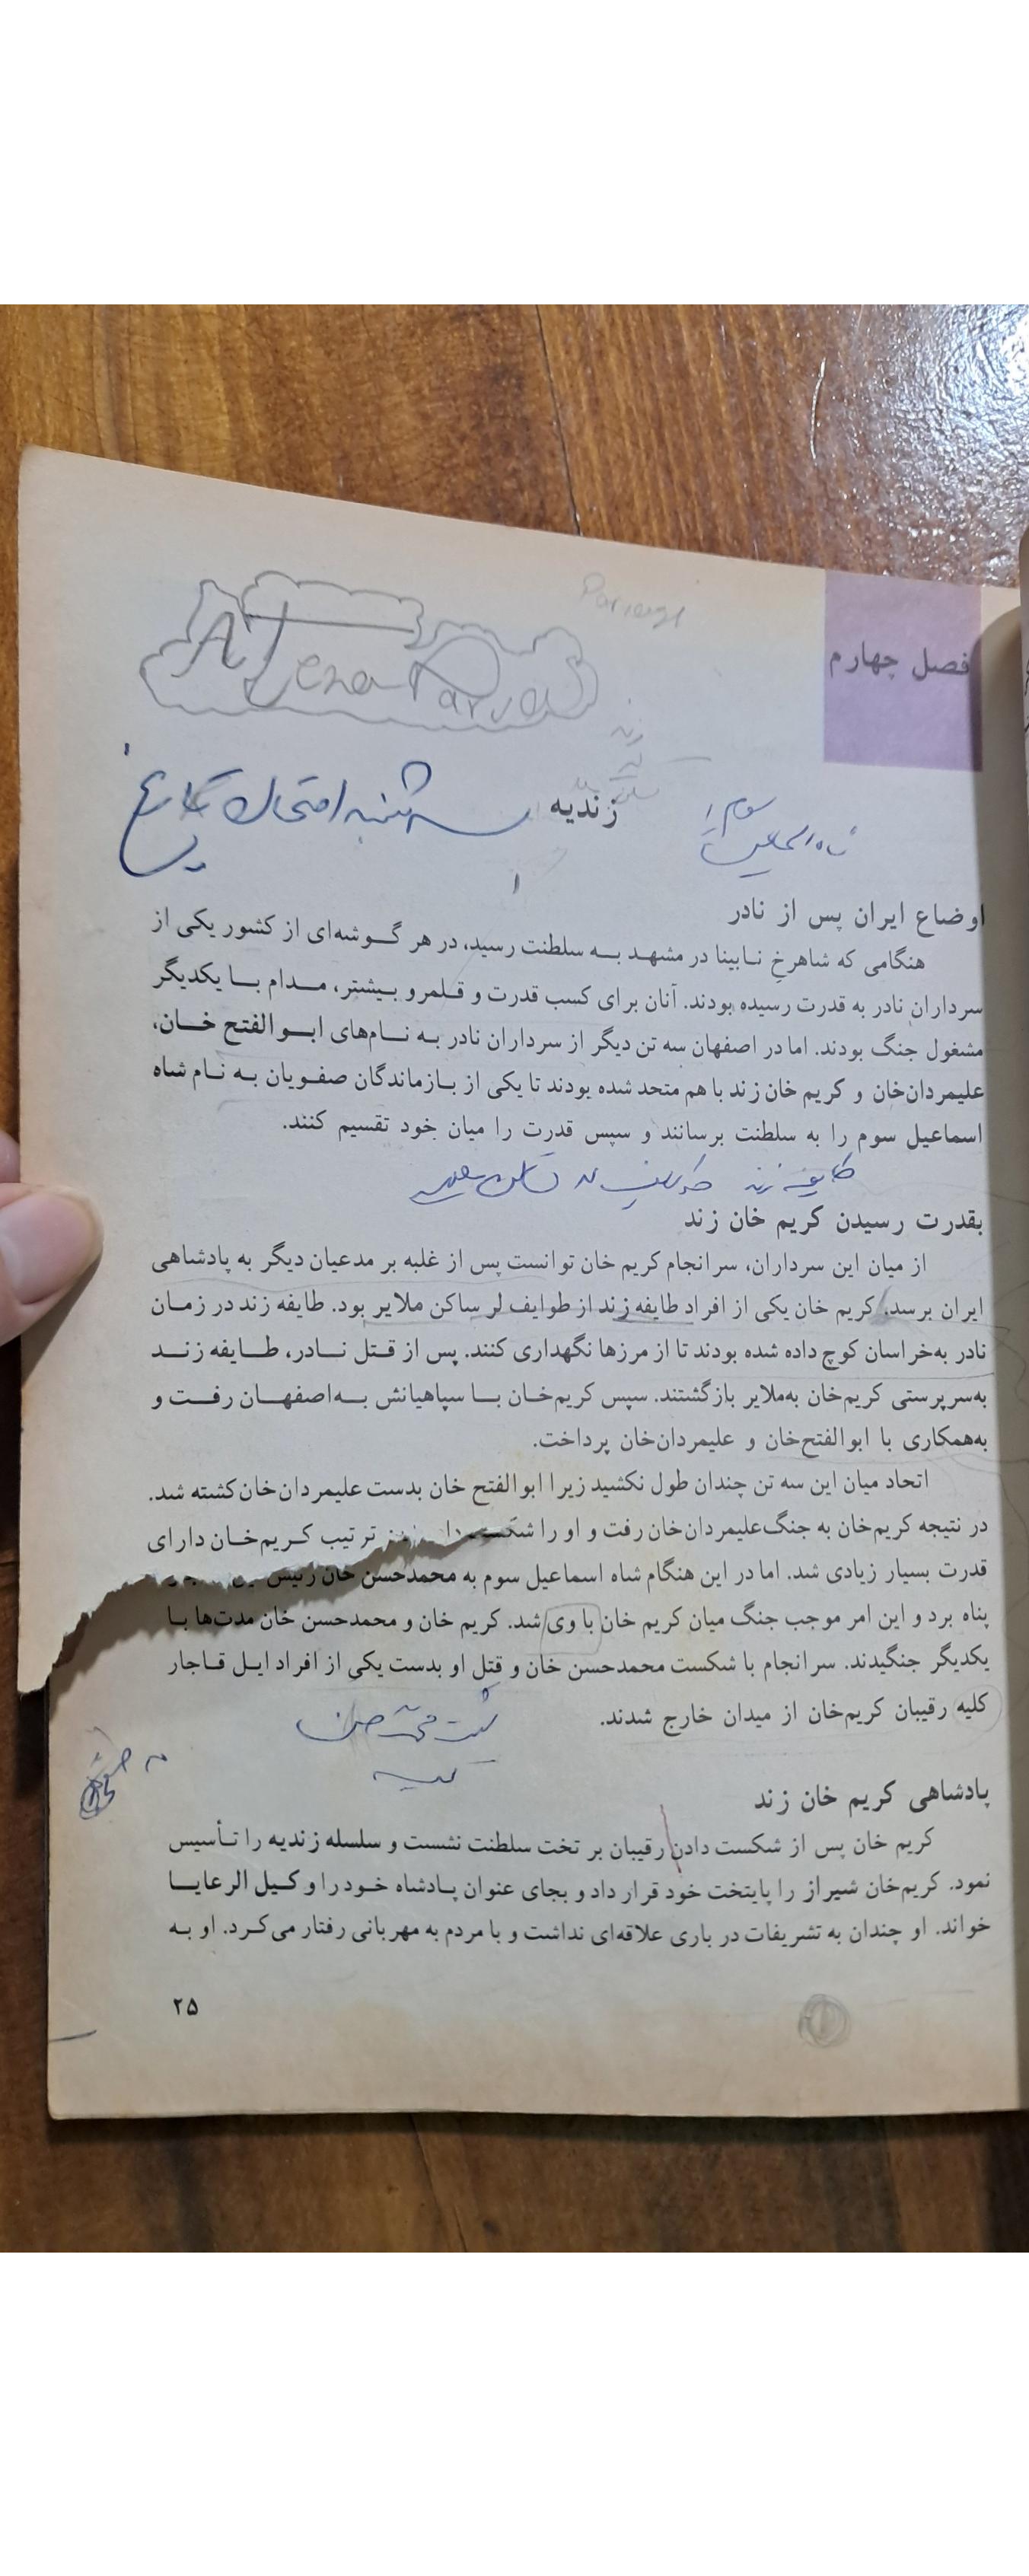 فصل چهارم
زندیه
سه شنبه امتحان تاریخ
اوضاع ایران پس از نادر
هنگامی که شاهرخِ نابینا در مشهد به سلطنت رسید، در هر گوشه‌ای از کشور یکی از
سرداران نادر به قدرت رسیده بودند. آنان برای کسب قدرت و قلمرو بیشتر، مدام با یکدیگر
مشغول جنگ بودند. اما در اصفهان سه تن دیگر از سرداران نادر به نام‌های ابوالفتح خان،
علیمردان‌خان و کریم خان زند با هم متحد شده بودند تا یکی از بازماندگان صفویان به نام شاه
اسماعیل سوم را به سلطنت برسانند و سپس قدرت را میان خود تقسیم کنند.
طایفه زند
بقدرت رسیدن کریم خان زند
از میان این سرداران، سرانجام کریم خان توانست پس از غلبه بر مدعیان دیگر به پادشاهی
ایران برسد. کریم خان یکی از افراد طایفه زند از طوایف لر ساکن ملایر بود. طایفه زند در زمان
نادر به‌خراسان کوچ داده شده بودند تا از مرزها نگهداری کنند. پس از قتل نادر، طایفه زند
به‌سرپرستی کریم‌خان به‌ملایر بازگشتند. سپس کریم‌خان با سپاهیانش به‌اصفهان رفت و
به‌همکاری با ابوالفتح‌خان و علیمردان‌خان پرداخت.
اتحاد میان این سه تن چندان طول نکشید زیرا ابوالفتح خان بدست علیمردان‌خان کشته شد.
در نتیجه کریم‌خان به جنگ علیمردان‌خان رفت و او را ترتیب کریم‌خان دارای
قدرت بسیار زیادی شد. اما در این هنگام شاه اسماعیل سوم به محمدحسن خان رئیس
پناه برد و این امر موجب جنگ میان کریم خان با وی شد. کریم خان و محمدحسن خان مدت‌ها با
یکدیگر جنگیدند. سرانجام با شکست محمدحسن خان و قتل او بدست یکی از افراد ایل قاجار
کلیه رقیبان کریم‌خان از میدان خارج شدند.
پادشاهی کریم خان زند
کریم خان پس از شکست دادن رقیبان بر تخت سلطنت نشست و سلسله زندیه را تأسیس
نمود. کریم‌خان شیراز را پایتخت خود قرار داد و بجای عنوان پادشاه خود را وکیل الرعایا
خواند. او چندان به تشریفات درباری علاقه‌ای نداشت و با مردم به مهربانی رفتار می‌کرد. او به
۲۵